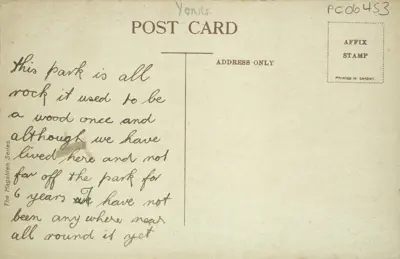 Yonis
PC06453
POST CARD
ADDRESS ONLY
AFFIX
STAMP
PRINTED IN SAXONY
The Hagelien Series
this park is all
rock it used to be
a wood once and
although we have
lived here and not
far off the park for
6 years I have not
been any where near
all round it yet